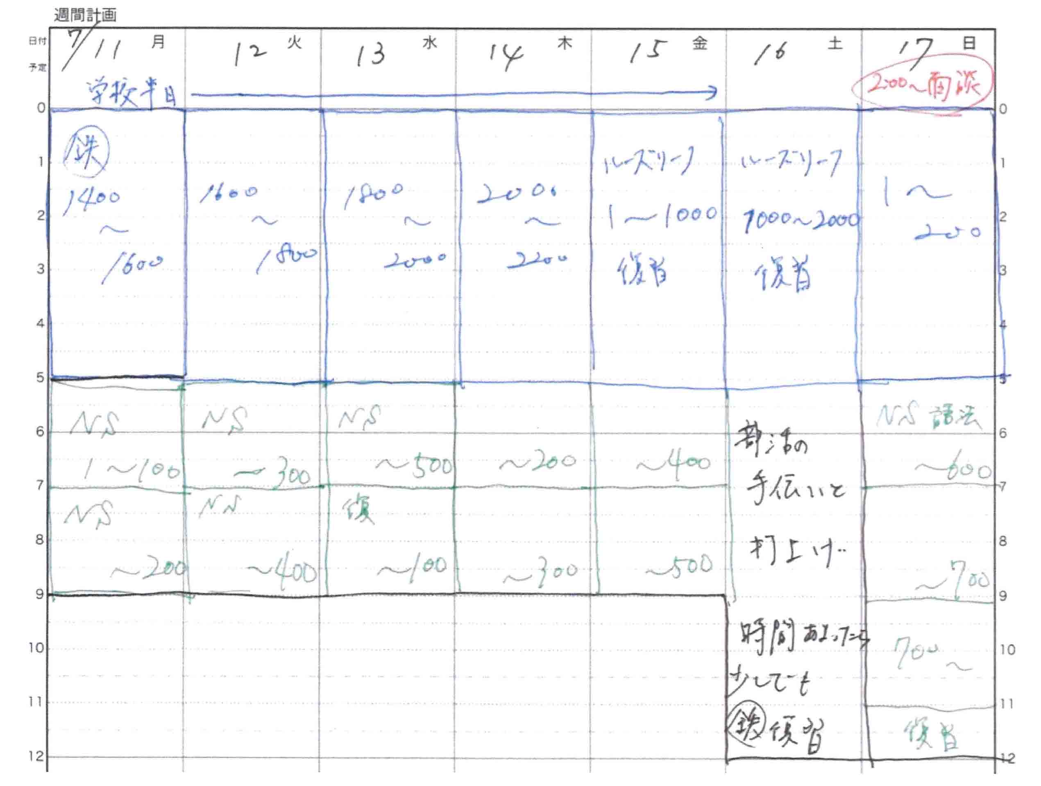 週間計画
日付
予定
7/11 月
12 火
13 水
14 木
15 金
16 土
17 日
学校半日
2:00〜面談
0
1
2
3
4
5
6
7
8
9
10
11
12
鉄
1400
〜
1600
1600
〜
1800
1800
〜
2000
2000
〜
2200
ルーズリーフ
1〜1000
復習
ルーズリーフ
1000〜2000
復習
1〜
200
NS
1〜100
NS
〜200
NS
〜300
NS
〜400
NS
〜500
復
〜100
〜200
〜300
〜400
〜500
部活の
手伝いと
打上げ
時間あまったら
少しでも
鉄復習
NS 語法
〜600
〜700
700〜
復習
0
1
2
3
4
5
6
7
8
9
10
11
12